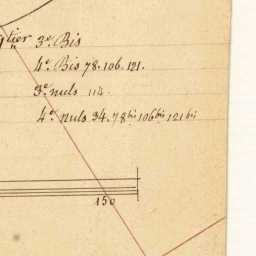 tier 3e. Bis
4e. Bis 78. 106. 121.
3e nuls 114.
4e nuls 34. 78bis 106bis 121bis
150